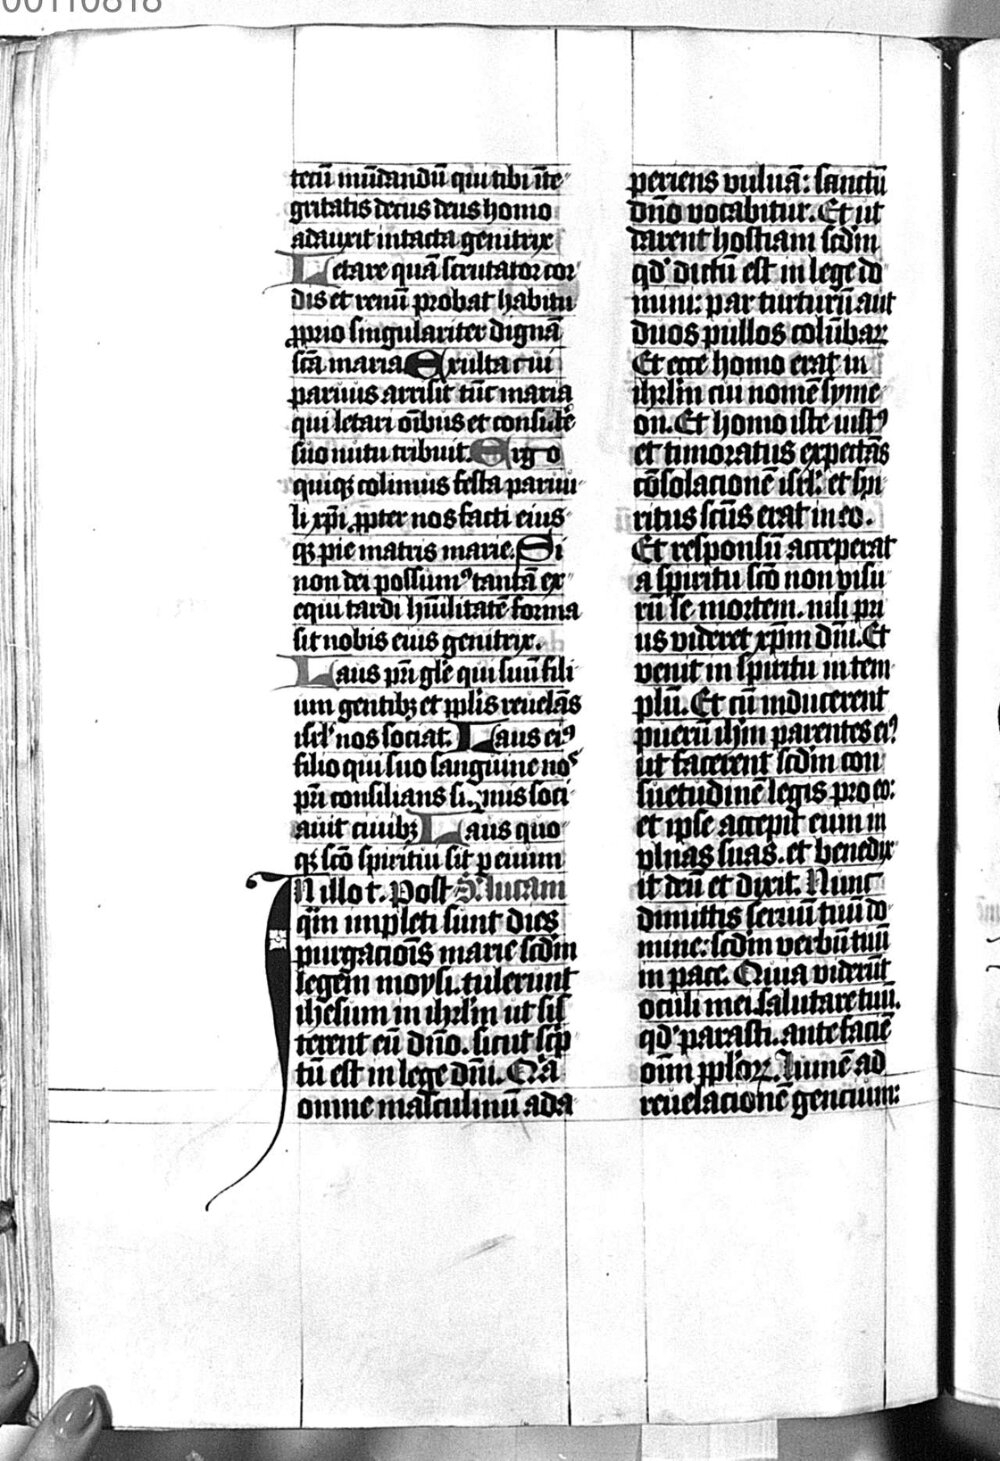 00110818
tecū mūdandū qui tibi īte
gritatis decus deus homo
adauxit intacta genitrix
Letare quā scrutator cor
dis et renū probat habitu
ꝓprio singulariter dignā
sc̄a maria Exulta cui
paruus arrisit tūc maria
qui letari oībus et consiste
suo nutu tribuit. Ergo
quiqꝫ colimus festa paruu
li xp̄i ꝓpter nos facti eius
qꝫ pie matris marie. Si
non dei possumꝰ tantā ex
equi tardi hūilitatē forma
sit nobis eius genitrix.
Laus pr̄i gle qui suū fili
um gentibꝫ et pplīs reuelās
isrl' nos sociat. Laus eiꝰ
filio qui suo sanguine nos
pr̄i consilians supernis soci
auit ciuibꝫ Laus quo
qꝫ sc̄o spiritui sit p eiuum
In illo t. Post S. lucam
qm̄ impleti sunt dies
purgaciōis marie scdm
legem moysi. tulerunt
ihesum in ihrl'm ut sis
terent eū dn̄o. sicut scp
tū est in lege dn̄i. Q'a
omne masculinū ada
periens vuluā: sanctū
dn̄o vocabitur. Et ut
darent hostiam scdm
qd' dictū est in lege do
mini: par turturū aut
duos pullos colūbaꝝ
Et ecce homo erat in
ihrl'm cui nomē syme
on. Et homo iste iustꝰ
et timoratus expectās
cōsolacionē isrl': et spi
ritus scūs erat in eo.
Et responsū acceperat
a spiritu sc̄o non visu
rū se mortem. nisi pri
us videret xp̄m dn̄i. Et
venit in spiritu in tem
plū. Et cū inducerent
puerū ihm parentes eiꝰ
ut facerent scdm con
suetudinē legis pro eo:
et ipse accepit eum in
vlnas suas. et benedix
it deū et dixit. Nunc
dimittis seruū tuū do
mine: scdm verbū tuū
in pace. Quia viderūt
oculi mei salutare tuū.
qd' parasti. ante faciē
oīm pplōꝝ. Lumē ad
reuelacionē gencium: